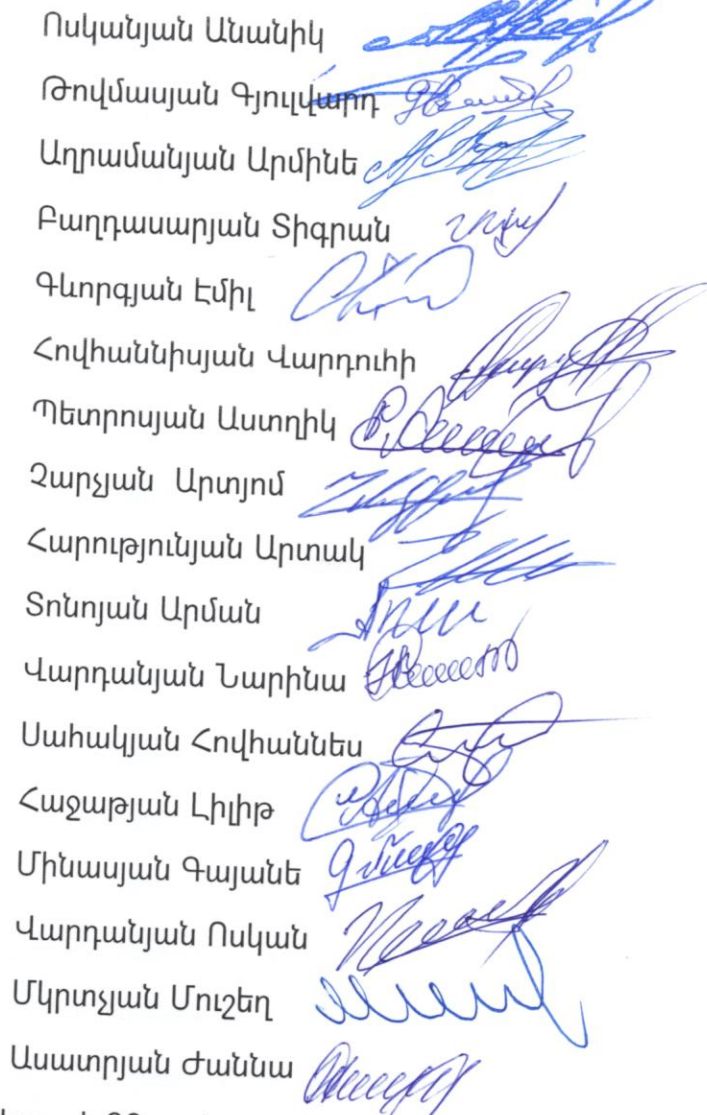 Ոսկանյան Անանիկ
Թովմասյան Գյուլվարդ
Աղրամանյան Արմինե
Բաղդասարյան Տիգրան
Գևորգյան Էմիլ
Հովհաննիսյան Վարդուհի
Պետրոսյան Աստղիկ
Չարչյան Արտյոմ
Հարությունյան Արտակ
Տոնոյան Արման
Վարդանյան Նարինա
Սահակյան Հովհաննես
Հաջաթյան Լիլիթ
Մինասյան Գայանե
Վարդանյան Ոսկան
Մկրտչյան Մուշեղ
Ասատրյան Ժաննա